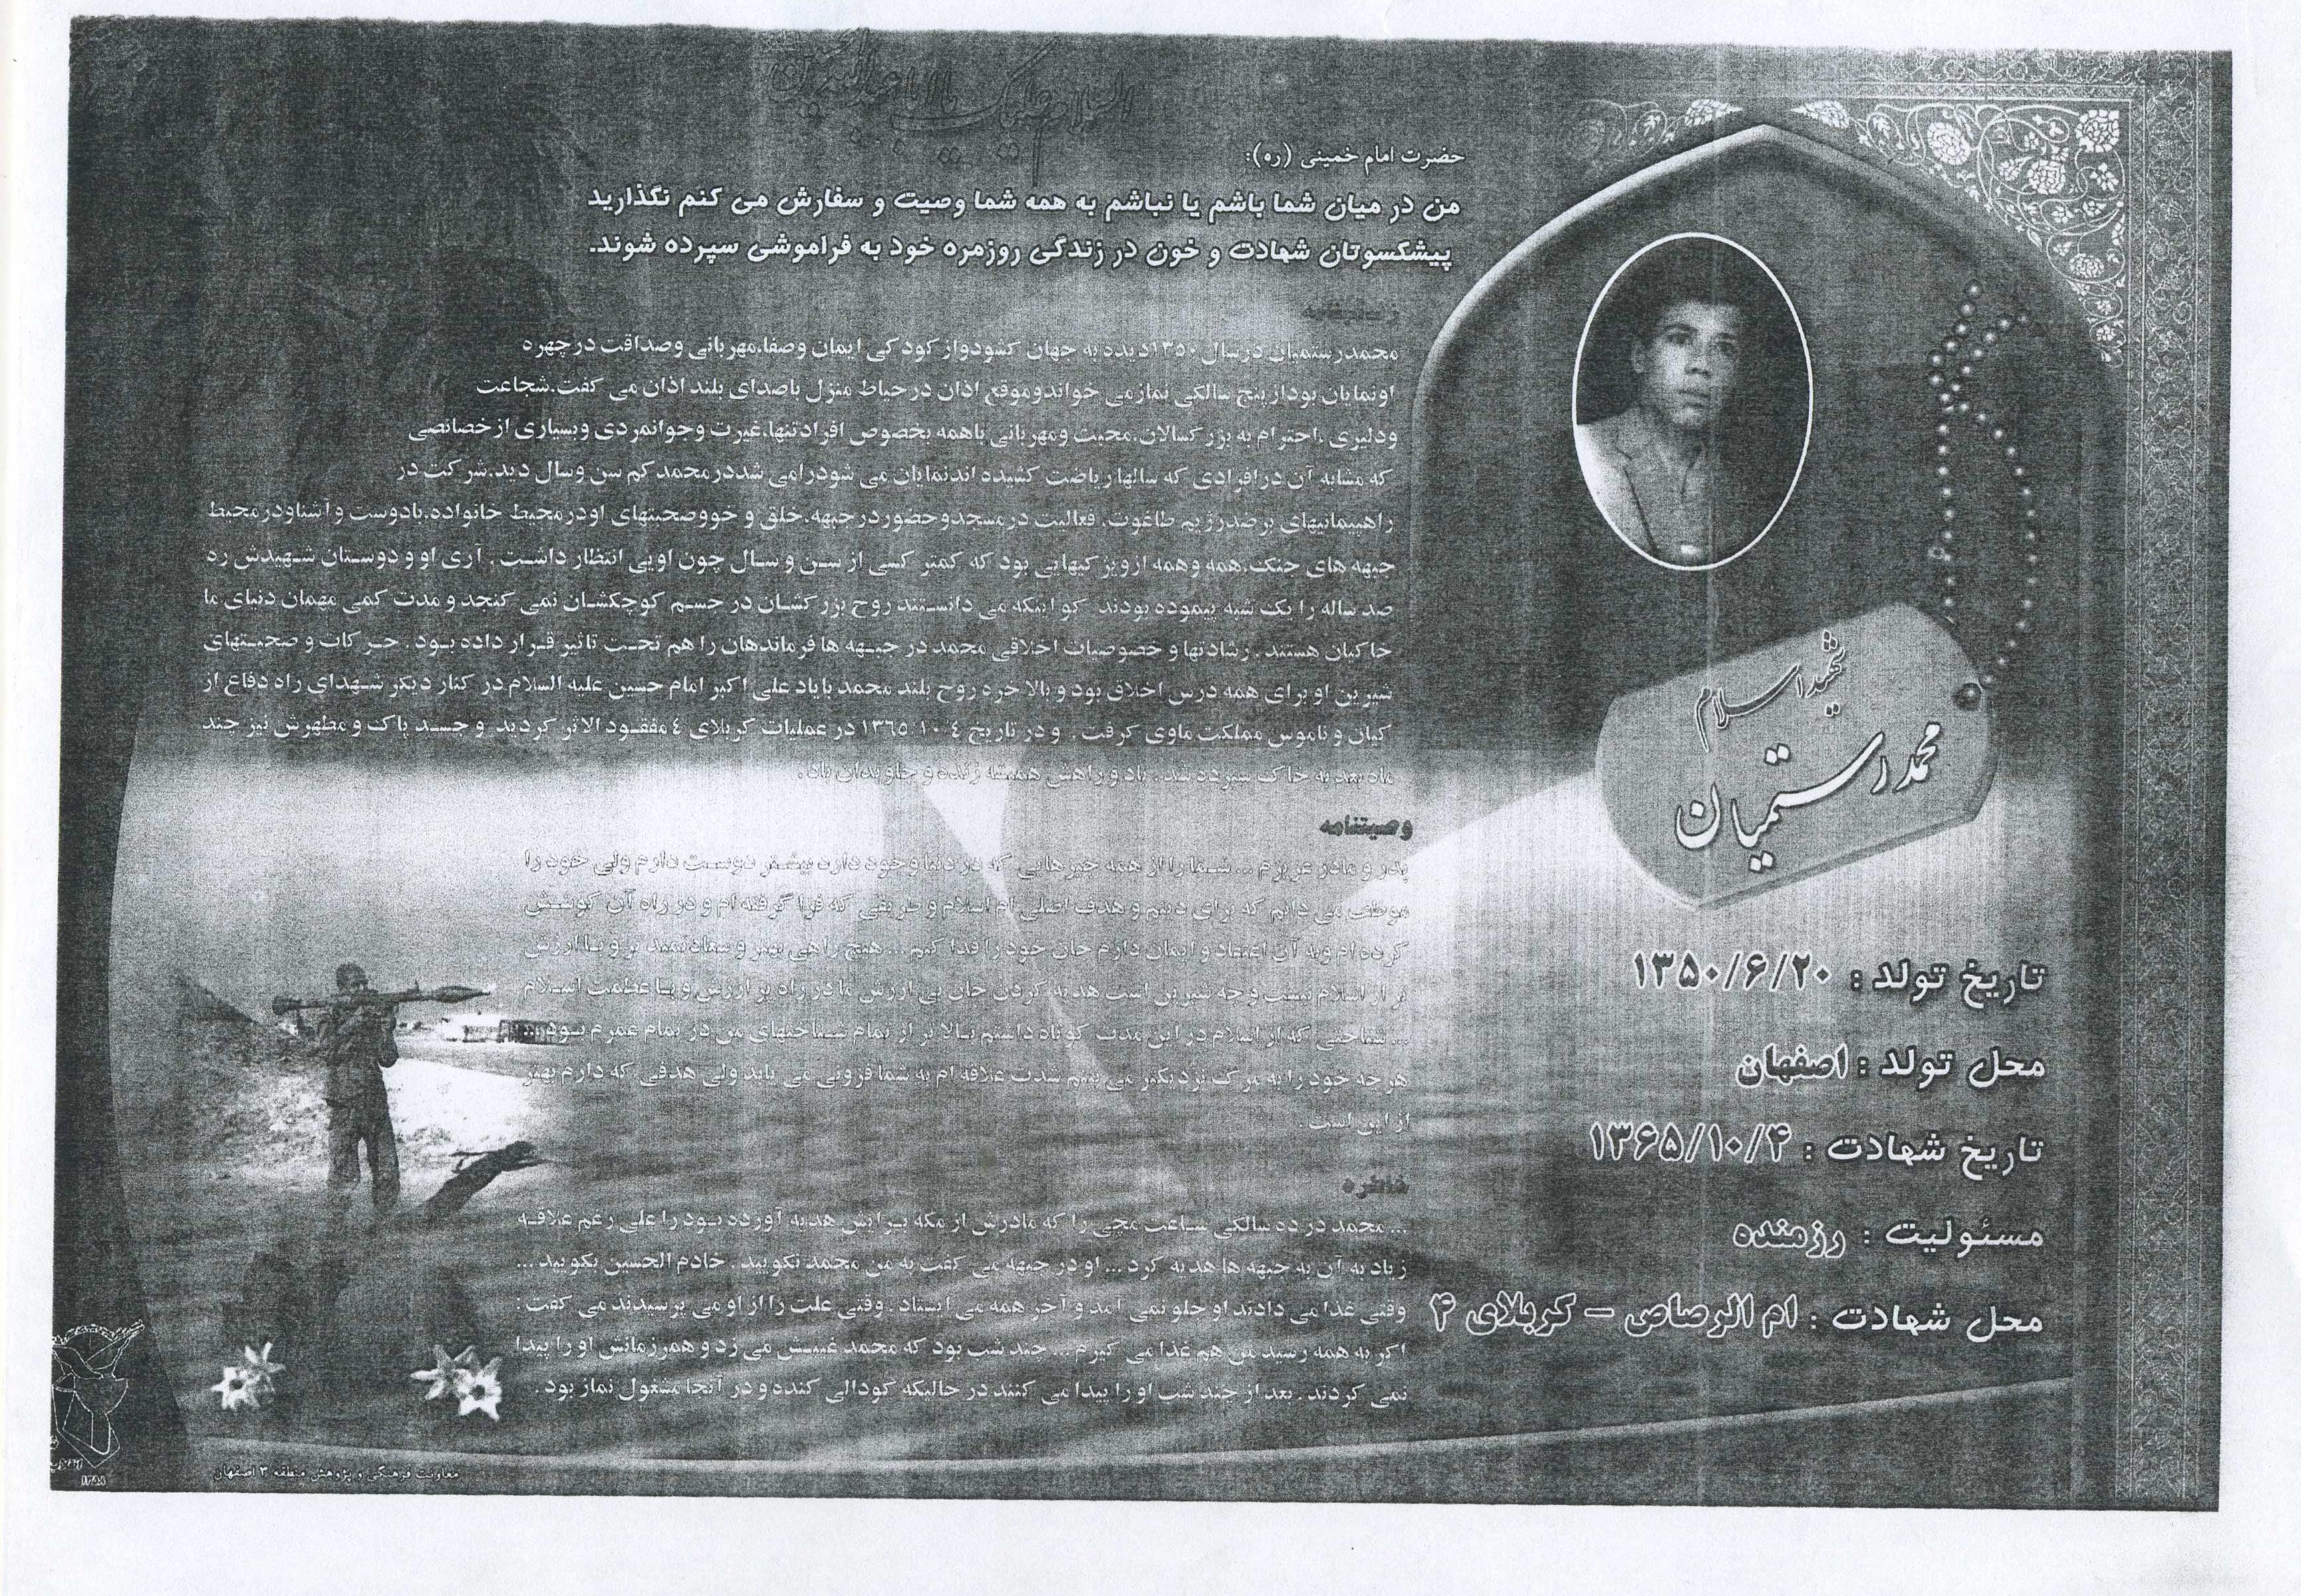 السلام علیک یا اباعبدالله الحسین
حضرت امام خمینی (ره):
من در میان شما باشم یا نباشم به همه شما وصیت و سفارش می کنم نگذارید
پیشکسوتان شهادت و خون در زندگی روزمره خود به فراموشی سپرده شوند.
زندگینامه
محمدرستمیان درسال ۱۳۵۰دیده به جهان گشودواز کودکی ایمان وصفا،مهربانی وصداقت درچهره
اونمایان بوداز پنج سالگی نمازمی خواندوموقع اذان درحیاط منزل باصدای بلند اذان می گفت.شجاعت
ودلیری ،احترام به بزرگسالان،محبت ومهربانی باهمه بخصوص افرادتنها،غیرت وجوانمردی وبسیاری ازخصائصی
که مشابه آن درافرادی که سالها ریاضت کشیده اندنمایان می شودرامی شددرمحمد کم سن وسال دید.شرکت در
راهپیماییهای برضدرژیم طاغوت، فعالیت درمسجدوحضوردرجبهه،خلق و خووصحبتهای اودرمحیط خانواده،بادوست وآشناودرمحیط
جبهه های جنگ،همه وهمه ازویژگیهایی بود که کمتر کسی از سن و سال چون اویی انتظار داشت . آری او و دوستان شهیدش ره
صد ساله را یک شبه پیموده بودند گو اینکه می دانستند روح بزرگشان در جسم کوچکشان نمی گنجد و مدت کمی مهمان دنیای ما
خاکیان هستند . رشادتها و خصوصیات اخلاقی محمد در جبهه ها فرماندهان را هم تحت تاثیر قرار داده بود . حرکات و صحبتهای
شیرین او برای همه درس اخلاق بود و بالا خره روح بلند محمد با یاد علی اکبر امام حسین علیه السلام در کنار دیگر شهدای راه دفاع از
کیان و ناموس مملکت ماوی گرفت . و در تاریخ ۴-۱۰-۱۳۶۵ در عملیات کربلای ۴ مفقود الاثر گردید و جسد پاک و مطهرش نیز چند
ماه بعد به خاک سپرده شد . یاد و راهش همیشه زنده و جاویدان باد .
وصیتنامه
پدر و مادر عزیزم ... شما را از همه چیز هایی که در دنیا وجود دارد بیشتر دوست دارم ولی خود را
موظف می دانم که برای دینم و هدف اصلی ام اسلام و طریقی که فرا گرفته ام و در راه آن کوشش
کرده ام وبه آن اعتقاد و ایمان دارم جان خود را فدا کنم ... هیچ راهی بهتر و سعادتمند تر و با ارزش
تر از اسلام نیست و چه شیرین است هدیه کردن جان بی ارزش ما در راه پر ارزش و با عظمت اسلام
... شناختی که از اسلام در این مدت کوتاه داشتم بالا تر از تمام شناختهای من در تمام عمرم بود ...
هرچه خود را به مرگ نزدیکتر می بینم شدت علاقه ام به شما فزونی می یابد ولی هدفی که دارم بهتر
از این است .
خاطره
... محمد در ده سالگی ساعت مچی را که مادرش از مکه برایش هدیه آورده بود را علی رغم علاقه
زیاد به آن به جبهه ها هدیه کرد ... او در جبهه می گفت به من محمد نگویید . خادم الحسین بگویید ...
وقتی غذا می دادند او جلو نمی آمد و آخر همه می ایستاد . وقتی علت را از او می پرسیدند می گفت :
اگر به همه رسید من هم غذا می گیرم ... چند شب بود که محمد غیبش می زد و همرزمانش او را پیدا
نمی کردند . بعد از چند شب او را پیدا می کنند در حالیکه گودالی کنده و در آنجا مشغول نماز بود .
شهید اسلام
محمد رستمیان
تاریخ تولد : ۱۳۵۰/۶/۲۰
محل تولد : اصفهان
تاریخ شهادت : ۱۳۶۵/۱۰/۴
مسئولیت : رزمنده
محل شهادت : ام الرصاص – کربلای ۴
معاونت فرهنگی و پژوهش منطقه ۳ اصفهان
۱۳۵۸